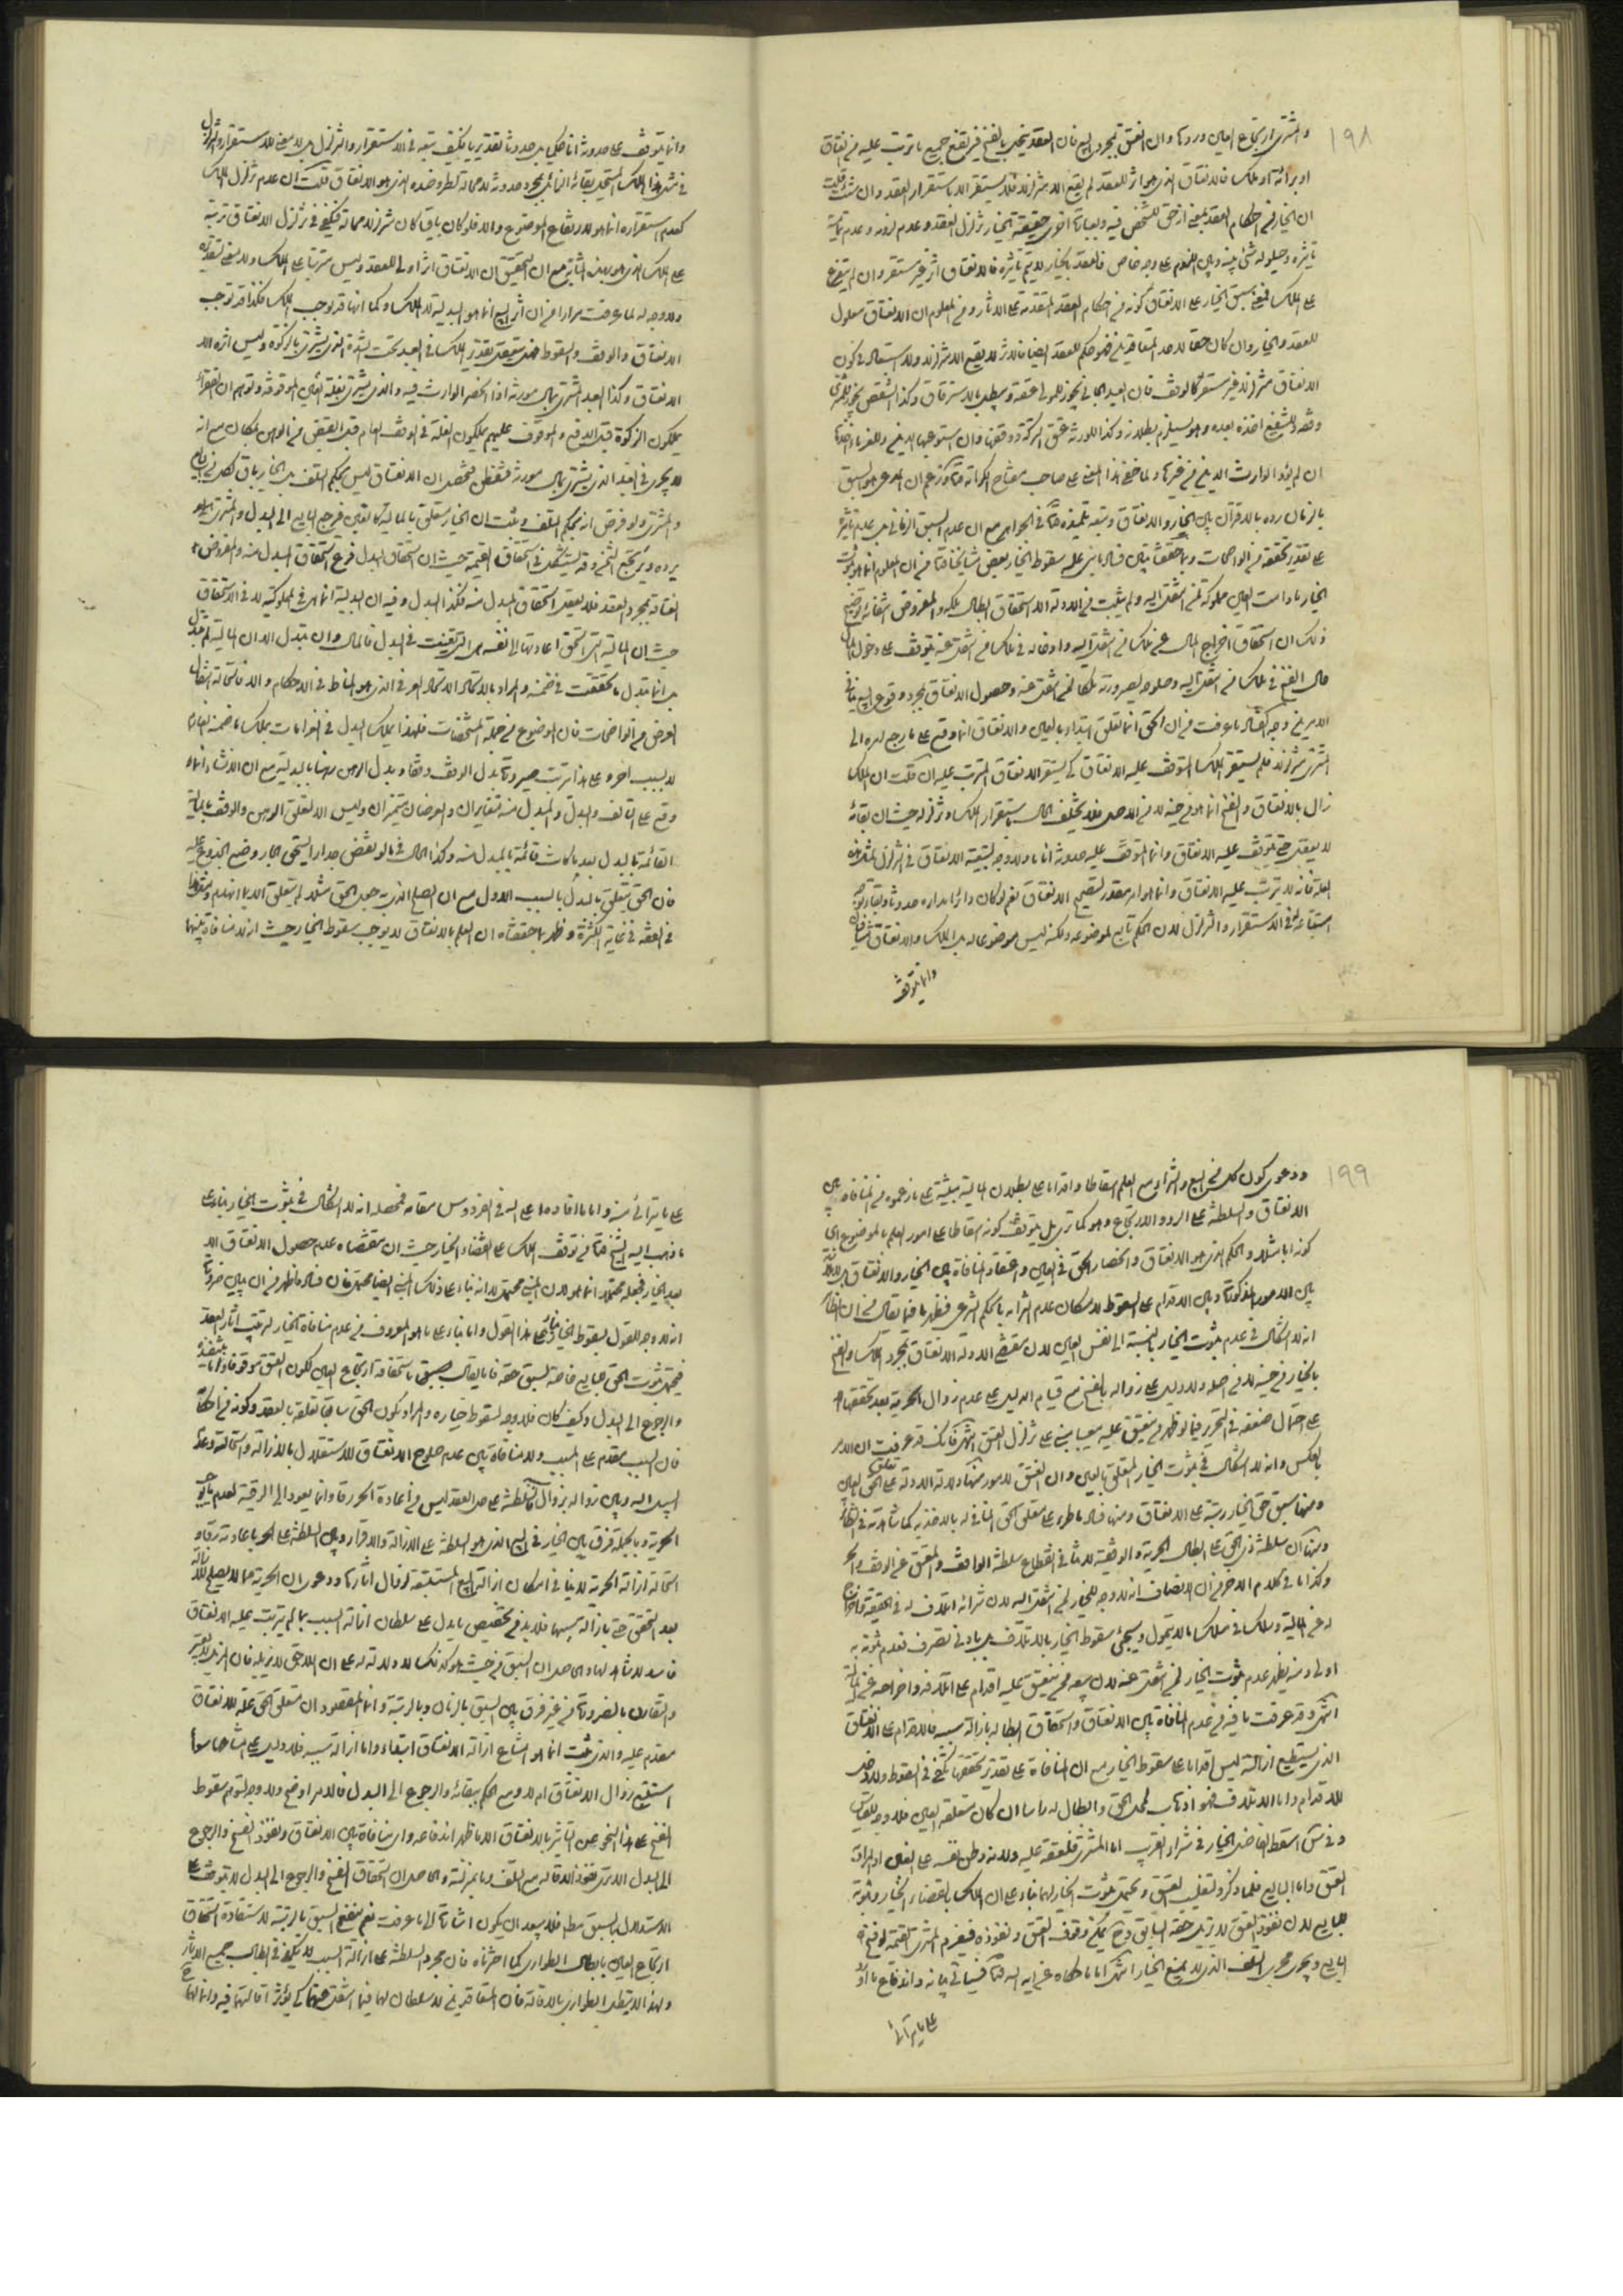 ١٩٨
والمشتري ارتجاع العين وردها وان العتق بمجرد البيع فان العقد ينحل بالفسخ فيرتفع جميع ما ترتب عليه من انعتاق
او براءة او ملك فالانعتاق الذي هو اثر للعقد لم يقع الا متزلزلا فلا يستقر الا باستقرار العقد وان شئت قلت
ان الخيار من احكام العقد بمعنى انه حق للشخص فيه وبعبارة اخرى حقيقة الخيار تزلزل العقد وعدم لزومه وعدم تمامية
تاثيره وحيلولة شيء بينه وبين اللزوم على وجه خاص فالعقد الخياري لا يتم تاثيره فالانعتاق اثر غير مستقر وان لم يتفرع
على الملك فمعنى سبق الخيار على الانعتاق كونه من احكام العقد المتقدمة على الآثار ومن المعلوم ان الانعتاق معلول
للعقد والخيار وان كان حقا لاحد المتعاقدين فهو حكم للعقد ايضا فالاثر لا يقع الا متزلزلا ولا استبعاد في كون
الانعتاق متزلزلا غير مستقر كالوقف فان العبد الجاني يجوز للمولى عتقه ويبطل بالاسترقاق وكذا الشقص يجوز للمشتري
وقفه وللشفيع اخذه بعده وهو يستلزم بطلانه وكذا للورثة عتق التركة ووقفها وان استوعبها الدين وللغرماء اخذها
ان لم يؤد الوارث الدين من غيرها ولما خفي هذا المعنى على صاحب مفتاح الكرامة زعم ان المدعى هو السبق
بالزمان ورده بالاقتران بين الخيار والانعتاق وتبعه تلميذه في الجواهر مع ان عدم السبق الزماني بل عدم تاثيره
على تقدير تحققه من الواضحات وبما حققنا تبين فساد ما بنى عليه سقوط الخيار بعض مشايخنا من ان المعلوم انما هو ثبوت
الخيار ما دامت العين مملوكة لمن انتقل اليه ولم يثبت من الادلة الا استحقاق ابطال ملكه والمفروض انتفائه توضيح
ذلك ان استحقاق اخراج المال عن ملك من انتقل اليه وادخاله في ملك من انتقل عنه يتوقف على دخول المال
حال الفسخ في ملك من انتقل اليه وصلوحه لصيرورته ملكا لمن انتقل عنه وحصول الانعتاق بمجرد وقوع البيع ينافي
الامرين وجه الفساد ما عرفت من ان الحق انما تعلق ابتداء بالعين والانعتاق انما وقع على ما رجع امره الى
المشتري متزلزلا فلم يستقر الملك المتوقف عليه الانعتاق كي يستقر الانعتاق المترتب عليه ان قلت ان الملك
زال بالانعتاق والفسخ انما هو من حينه لا من الاصل فلا يختلف الحال باستقرار الملك وتزلزله حيث ان بقائه
لا يعقل حتى يتوقف عليه الانعتاق وانما المتوقف عليه حدوثه آنا ما ولا وجه لتبعية الانعتاق في التزلزل لمثل هذه
العلة فانه لا يترتب عليه الانعتاق وانما هو امر مقدر لتصحيح الانعتاق نعم لو كان دائرا مداره حدوثا وبقاء توجه
استتباعه في الاستقرار والتزلزل لان الحكم تابع لموضوعه ولكنه ليس موضوعا له بل الملك والانعتاق متنافيان
وانما يتوقف
وانما يتوقف على حدوثه آنا فكما بل حدوثا تقديريا فكيف يتبعه في الاستقرار والتزلزل بل لا معنى للاستقرار والتزلزل
في مثل هذا الملك المستحيل بقائه الزائل بمجرد حدوثه لاحمالة لطرو ضده الذي هو الانعتاق قلت ان عدم تزلزل الملك
كعدم استقراره انما هو لارتفاع الموضوع والا فلو كان باقيا كان متزلزلا لا محالة فيكفي في تزلزل الانعتاق ترتبه
على الملك الذي هو بهذه المثابة مع ان التحقيق ان الانعتاق اثر اولي للعقد وليس مترتبا على الملك ولا معنى لتقديره
ولا وجه له لما عرفت مرارا من ان اثر البيع انما هو البدلية لا الملك وكما انها قد توجب الملك فكذا قد توجب
الانعتاق والوقف والسقوط فمتى يتعقل تقدير الملك في العبد تحت الشدة الذي يشترى بالزكوة وليس اثره الا
الانعتاق وكذا العبد المشترى بمال مورثه اذا انحصر الوارث فيه والذي يشترى بغلة العين الموقوفة وتوهم ان الفقراء
يملكون الزكوة قبل الدفع والموقوف عليهم يملكون الغلة في الوقف العام قبل القبض من الوهن بمكان مع انه
لا يجري في العبد الذي يشترى بمال مورثه فتفطن فتحصل ان الانعتاق ليس بحكم التلف بل الخيار باق لكل من البايع
والمشتري ولو فرض انه بحكم التلف وثبت ان الخيار متعلق بالمالية كما تعلق فرجع البايع الى البدل والمشتري
يرده ويرتجع الثمن وقد يستشكل في استحقاق القيمة حيث ان استحقاق البدل فرع استحقاق المبدل منه والمفروض
انعتاقه بمجرد العقد فلا يعقل استحقاق المبدل منه فكذا البدل وفيه ان البدلية انما هي في المملوكية لا في الاستحقاق
حيث ان المالية التي استحق اعادتها الى نفسه هي التي تعينت في البدل فالمال وان تبدل الا ان المالية لم تتبدل
بل انما تبدل ما تحققت في ضمنه والمراد بالاستحالة الاستحالة العرفي الذي هو المناط في الاحكام والا فاستحالة انتقال
العرض من الواضحات فان الموضوع من جملة المشخصات فلهذا يملك البدل في الغرامات بملك ما ضمنه الضامن
لا بسبب آخر وعلى هذا يترتب صيرورة بدل الوقف وقفا وبدل الرهن رهنا بالبدلية مع ان الانشاء انما
وقع على التالف والبدل والمبدل منه متغايران والعرضان متميزان وليس الا لتعلق الرهن والوقف بالمالية
القائمة بالبدل بعد ما كانت قائمة بالمبدل منه وكذا الحال في ما لو نقض جدارا استحق الجار وضع الجذوع عليه
فان الحق يتعلق بالبدل بالسبب الاول مع ان الصلح الذي جعل الحق مثلا لم يتعلق الا بما انهدم ونظائرها
في الفقه في غاية الكثرة وظهر بما حققناه ان العلم بالانعتاق لا يوجب سقوط الخيار حيث انه لا منافاة بينهما
١٩٩
ودعوى كون كل من البيع والشراء مع العلم اسقاطا واقداما على بطلان المالية مبنية على ما زعموه من المنافاة بين
الانعتاق والسلطنة على الرد والارتجاع وهو كما ترى بل يتوقف كونه اسقاطا على امور العلم بالموضوع اي
كونه ابا مثلا والحكم الذي هو الانعتاق وانحصار الحق في العين واعتقاد المنافاة بين الخيار والانعتاق
بين الامور المذكورة وبين الاقدام على السقوط لامكان عدم التزامه بالحكم الشرعي فظهر ما فيما يقال من ان
انه لا اشكال في عدم ثبوت الخيار بالنسبة الى نفس العين لان مقتضى الادلة الانعتاق بمجرد الملك والفسخ
بالخيار من حينه لا من اصله ولا دليل على زواله بالفسخ مع قيام الدليل على عدم زوال الحرية بعد تحققها
على احتمال ضعفه في التحرير فيما لو ظهر من ينعتق عليه معيبا مبني على تزلزل العتق انتهى فانك قد عرفت ان الامر
بالعكس وانه لا اشكال في ثبوت الخيار المتعلق بالعين وان العتق لامور منها دلالة الادلة على تعلق الحق بالعين
ومنها سبق حق الخيار رتبة على الانعتاق ومنها فساد ما طرء على متعلق الحق المنافي له بالاخذ به كما شاهدته في النظائر
ومنها ان سلطنة ذي الحق على ابطال الحرية والوقفية لا تنافي انقطاع سلطنة الواقف والمعتق عن الوقف والحر
وكذا ما في كلام الآخر من ان الانصاف انه لا وجه للخيار لمن انتقل اليه لان شرائه اتلاف له في الحقيقة واخراج
له عن المالية وسلكه في سلك ما لا يتمول وسيجئ سقوط الخيار بالاتلاف بل بادنى تصرف فعدم ثبوته به
اولى ومنه يظهر عدم ثبوت الخيار لمن انتقل عنه لان بيعه ممن ينعتق عليه اقدام على اتلافه واخراجه عن المالية
انتهى وقد عرفت ما فيه من عدم المنافاة بين الانعتاق واستحقاق ابطاله بازالة سببه فالاقدام على الانعتاق
الذي يستطيع ازالته ليس اقداما على سقوط الخيار مع ان المنافاة على تقدير تحققها تكفي في السقوط ولا دخل
للاقدام واما الاتلاف فهو اذهاب لمحل الحق وابطال له راسا ان كان متعلقه العين فلا وجه للقياس
وفي مش اسقط الفاضل الخيار في شراء القريب اما المشتري فلعتقه عليه ولانه وطن نفسه على الغبن اذ المراد
العتق واما البايع فلما ذكر ولتغليب العتق ويحتمل ثبوت الخيار لهما بناء على ان الملك بانقضاء الخيار وثبوته
للبايع لان نفوذ العتق لا يزيل حقه السابق وح يمكن وقوف العتق ونفوذه فيغرم المشتري القيمة لو فسخ
البايع ويجري مجرى التلف الذي لا يمنع الخيار انتهى اما ما حكاه عن آية الله فسياتي بيانه واندفاع ما اورد
على ما يترائى
على ما يترائى منه واما ما افاده اعلى الله في الفردوس مقامه فمحصله انه لا اشكال في ثبوت الخيار بناء على
ما ذهب اليه الشيخ من توقف الملك على انقضاء الخيار حيث ان مقتضاه عدم حصول الانعتاق الا
بعد الخيار فجعله محتملا انما هو لان المبنى محتمل لا انه بناء على ذلك المبنى ايضا محتمل فان فساده اظهر من ان يبين ضرورة
انه لا وجه للقول بسقوط الخيار بناء على هذا القول واما بناء على ما هو المعروف من عدم منافاة الخيار لترتب آثار العقد
فيحتمل ثبوت الحق للبايع خاصة لسبق حقه فاما يقال باستحقاقه ارتجاع العين لكون العتق موقوفا واما بنفوذه
والرجوع الى البدل وكيف كان فلا وجه لسقوط خياره والمراد بكون الحق سابقا تعلقه بالعقد وكونه من احكامه
فان السبب مقدم على المسبب ولا منافاة بين عدم صلوح الانعتاق للاستقلال بالازالة واستحالة وعدم
السبيل اليه وبين زواله بزوال سببه فالسلطنة على حل العقد ليس من اعادة الحر رقا وانما يعود الى الرقية لعدم بقاء موجب
الحرية وبالجملة فرق بين الخيار في البيع الذي هو السلطنة على الازالة والاقرار وبين السلطنة على الحر باعادته رقا و
استحالة ازالة الحرية لا ينافي امكان ازالة البيع المستتبعة لزوال آثارها ودعوى ان الحرية مما لا يصلح للازالة
بعد التحقق حتى بازالة سببها فلا بد من تخصيص ما دل على سلطان ازالة السبب بما لم يترتب عليه الانعتاق
فاسد لا شاهد لها والحاصل ان السبق من حيث هو كذلك لا دلالة له على ان اللاحق لا يزيله فان المزيل لا يعتبر
والتقارن بالضرورة من غير فرق بين السبق بالزمان وبالرتبة وانما المقصود ان متعلق الحق علة للانعتاق
مقدم عليه والذي ثبت انما هو امتناع ازالة الانعتاق ابتداء واما ازالة سببه فلا دليل على امتناعها سواء
استتبع زوال الانعتاق ام لا ومع الحكم ببقائه والرجوع الى البدل فالامر اوضح ولا وجه لتوهم سقوط
الفسخ على هذا النحو عن التاثير بالانعتاق الا ما ظهر اندفاعه واي منافاة بين الانعتاق ونفوذ الفسخ والرجوع
الى البدل الا ترى نفوذ الاقالة مع التلف وما بمنزلته والحاصل ان استحقاق الفسخ والرجوع الى البدل لا يتوقف على
الاستدلال بالسبق مطلقا فلا يبعد ان يكون اشارة الى ما عرفت نعم ينفع السبق بالرتبة لاستفادة استحقاق
ارتجاع العين بابطال الطواري كما اخترناه فان مجرد السلطنة على ازالة السبب لا يكفي في ابطال جميع الآثار
ولهذا لا يبطل الطواري بالاقالة فان المتعاقدين لا سلطان لهما فيما انتقل عنهما كي يؤثر اقالتهما فيه وانما لهما